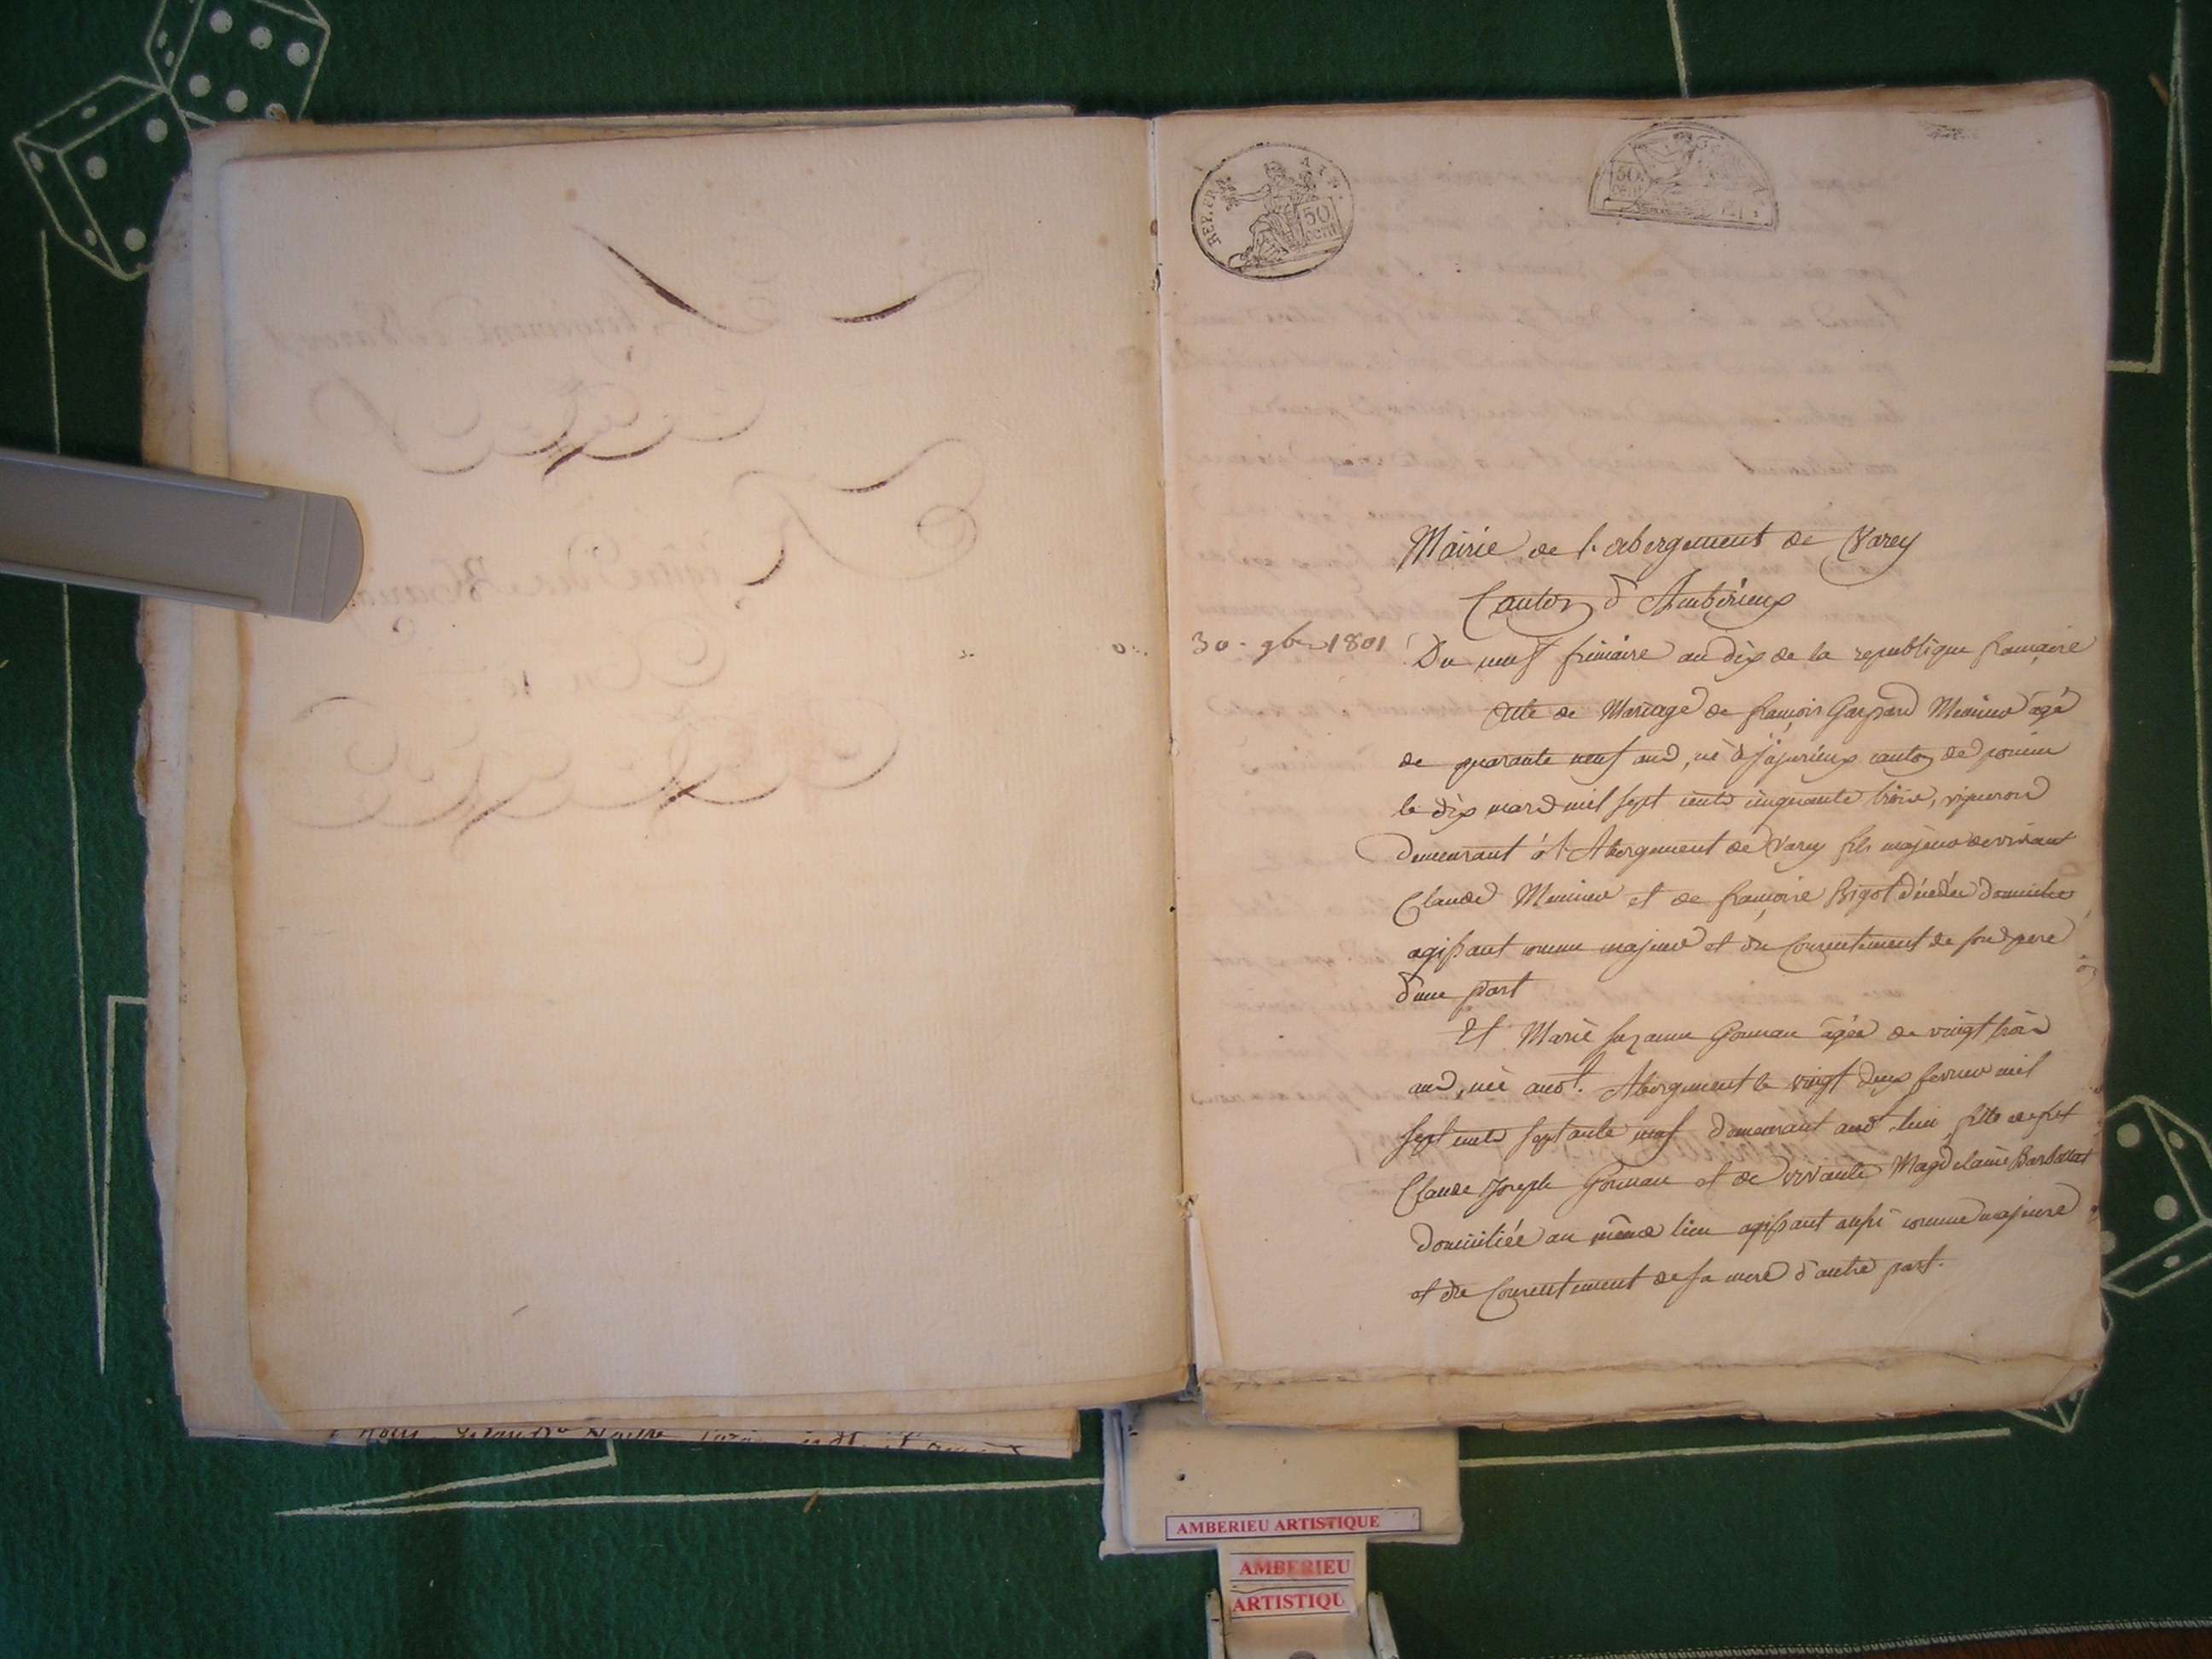 REP. FRA
50
CENT
50
CENT
Mairie de l'abergement de Varey
Canton d'Amberieux
30 - 9bre 1801
Du neuf frimaire an dix de la republique française
Acte de Mariage de françois Gaspard Meunier âgé
de quarante neuf ans, né à jujurieux canton de poncin
le dix mars mil sept cents cinquante trois, vigneron
Demeurant à l'Abergement de Varey fils majeur de vivant
Claude Meunier et de françoise Bigot décédée
agissant comme majeur et du Consentement de son pere
d'une part
Et Marie Suzanne Gonnau âgée de vingt trois
ans, née audt. Abergement le vingt deux fevrier mil
sept cents septante neuf demeurant audt lieu fille de fut
Claude Joseph Gonnau et de vivante Magdelaine
domiciliée au même lieu agissant aussi comme majeure
et du Consentement de sa mere d'autre part.
AMBERIEU ARTISTIQUE
AMBERIEU
ARTISTIQU